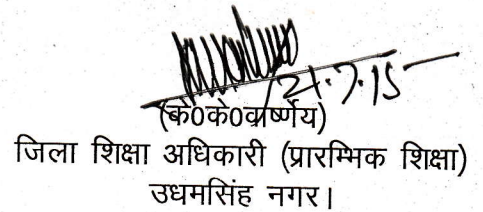 21.7.15
(के0के0वार्ष्णेय)
जिला शिक्षा अधिकारी (प्रारम्भिक शिक्षा)
उधमसिंह नगर।